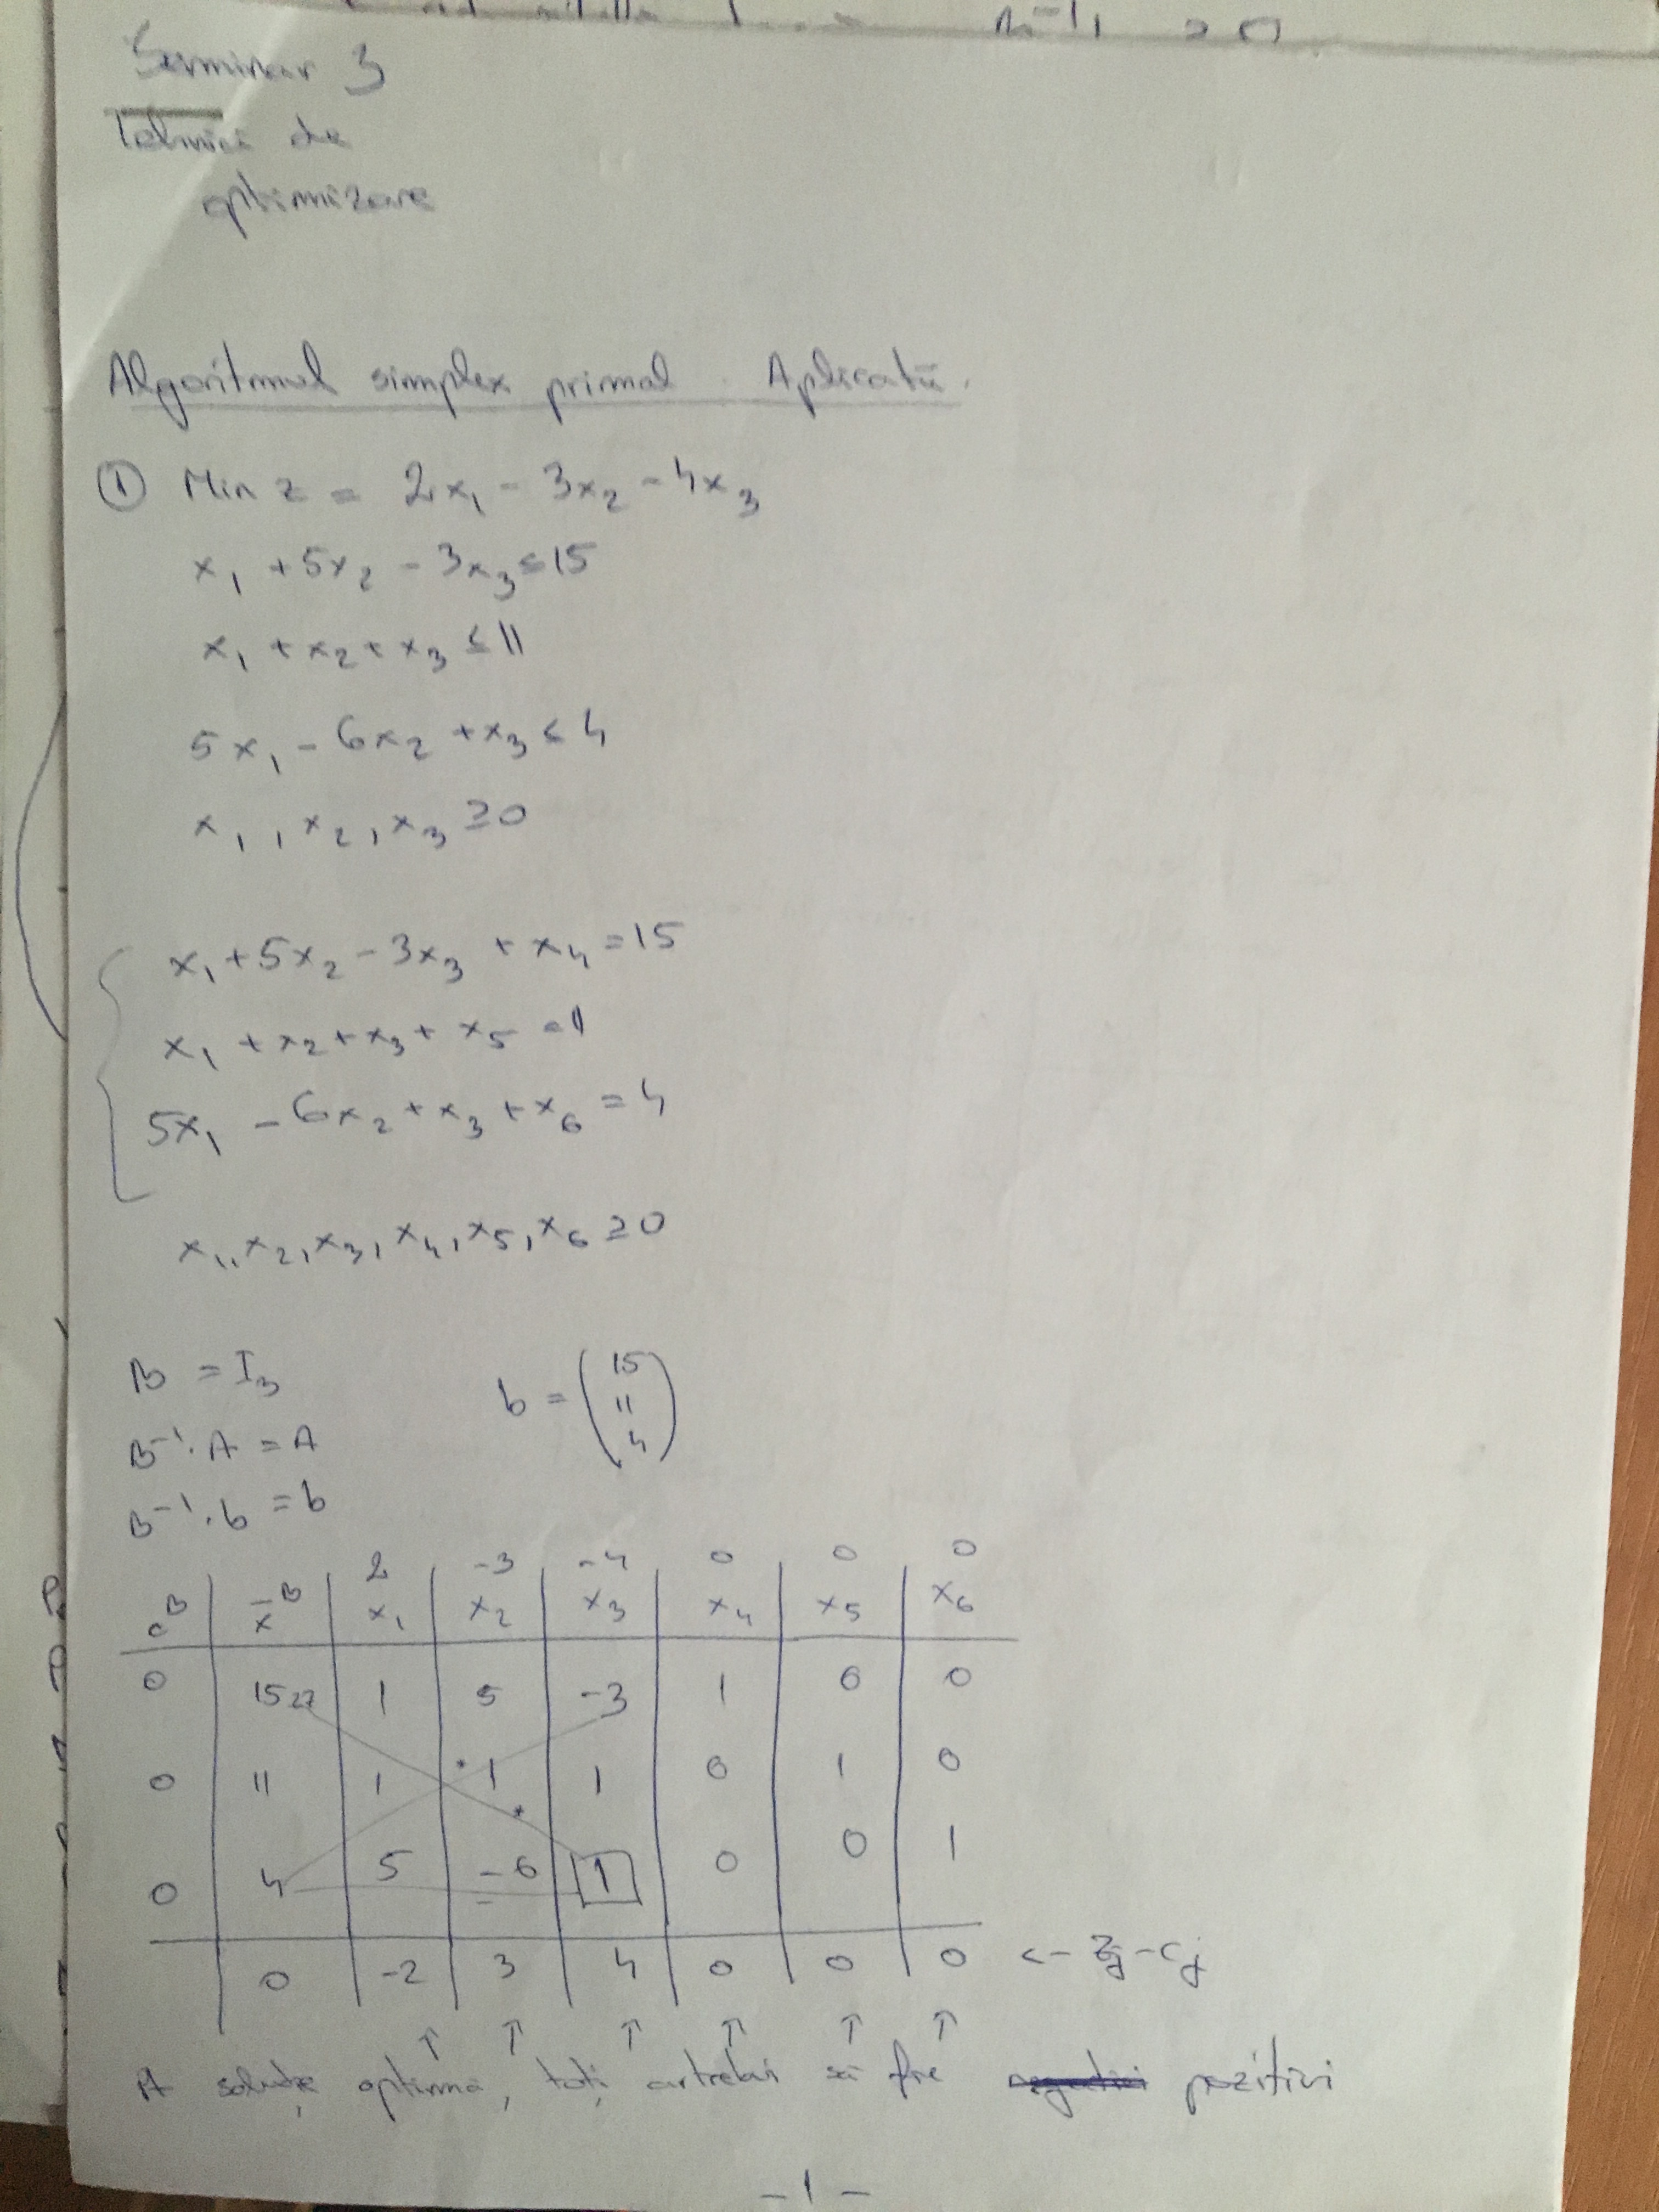 Seminar 3
Tehnici de
optimizare
Algoritmul simplex primal. Aplicatii.
① Min z = 2x₁ - 3x₂ - 4x₃
x₁ + 5x₂ - 3x₃ ≤ 15
x₁ + x₂ + x₃ ≤ 11
5x₁ - 6x₂ + x₃ ≤ 4
x₁, x₂, x₃ ≥ 0
x₁ + 5x₂ - 3x₃ + x₄ = 15
x₁ + x₂ + x₃ + x₅ = 11
5x₁ - 6x₂ + x₃ + x₆ = 4
x₁, x₂, x₃, x₄, x₅, x₆ ≥ 0
B = I₃
b = (15 11 4)
B⁻¹·A = A
B⁻¹·b = b
2 -3 -4 0 0 0
cᴮ x̄ᴮ x₁ x₂ x₃ x₄ x₅ x₆
0 15 27 1 5 -3 1 0 0
0 11 1 1 1 0 1 0
0 4 5 -6 1 0 0 1
0 -2 3 4 0 0 0 <- zj - cj
↑ ↑ ↑ ↑ ↑ ↑
soluție optimă, toți ar trebui să fie pozitivi
- 1 -